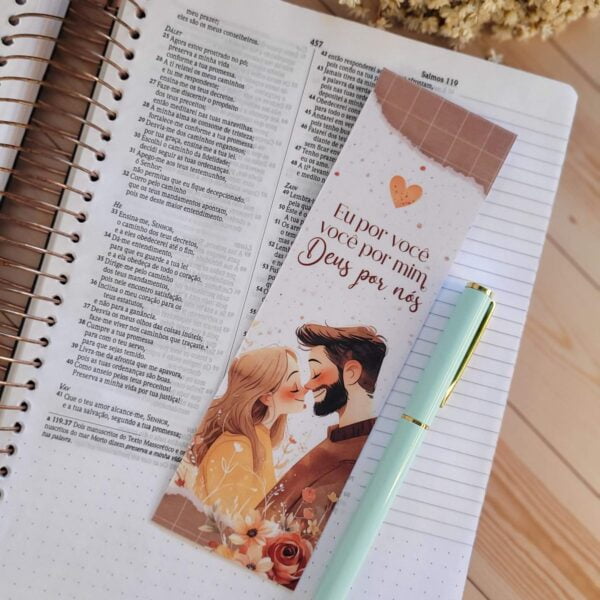 meu prazer;
eles são os meus conselheiros.
DALET
25 Agora estou prostrado no pó;
preserva a minha vida
conforme a tua promessa.
26 A ti relatei os meus caminhos
e tu me respondeste;
ensina-me os teus decretos.
27 Faze-me discernir o propósito
dos teus preceitos;
então meditarei nas tuas maravilhas.
28 A minha alma se consome de tristeza;
fortalece-me conforme a tua promessa.
29 Desvia-me dos caminhos enganosos;
por tua graça, ensina-me a tua lei.
30 Escolhi o caminho da fidelidade;
decidi seguir as tuas ordenanças.
31 Apego-me aos teus testemunhos,
ó SENHOR;
não permitas que eu fique decepcionado.
32 Corro pelo caminho
que os teus mandamentos apontam,
pois me deste maior entendimento.
HE
33 Ensina-me, SENHOR,
o caminho dos teus decretos,
e a eles obedecerei até o fim.
34 Dá-me entendimento,
para que eu guarde a tua lei
e a ela obedeça de todo o coração.
35 Dirige-me pelo caminho
dos teus mandamentos,
pois nele encontro satisfação.
36 Inclina o meu coração para os
teus estatutos,
e não para a ganância.
37 Desvia os meus olhos das coisas inúteis;
faze-me viver nos caminhos que traçaste.
38 Cumpre a tua promessa
para com o teu servo,
para que sejas temido.
39 Livra-me da afronta que me apavora,
pois as tuas ordenanças são boas.
40 Como anseio pelos teus preceitos!
Preserva a minha vida por tua justiça!
VAV
41 Que o teu amor alcance-me, SENHOR,
e a tua salvação, segundo a tua promessa;
119.37 Dois manuscritos do Texto Massorético e
muscritos do mar Morto dizem preserva a minha vida
tua palavra.
457
Salmos 119
42 então responderei
pois confio na tua
43 Jamais tires da
a palavra da
pois
44 Obedecerei
para
45 Andarei em
pois tenho
46 Falarei dos
diante de
sem ficar
47 Tenho prazer
eu os
48 A ti levanto
e medito
49 Lembra-te
50 Este é o
Eu por você
você por mim,
Deus por nós